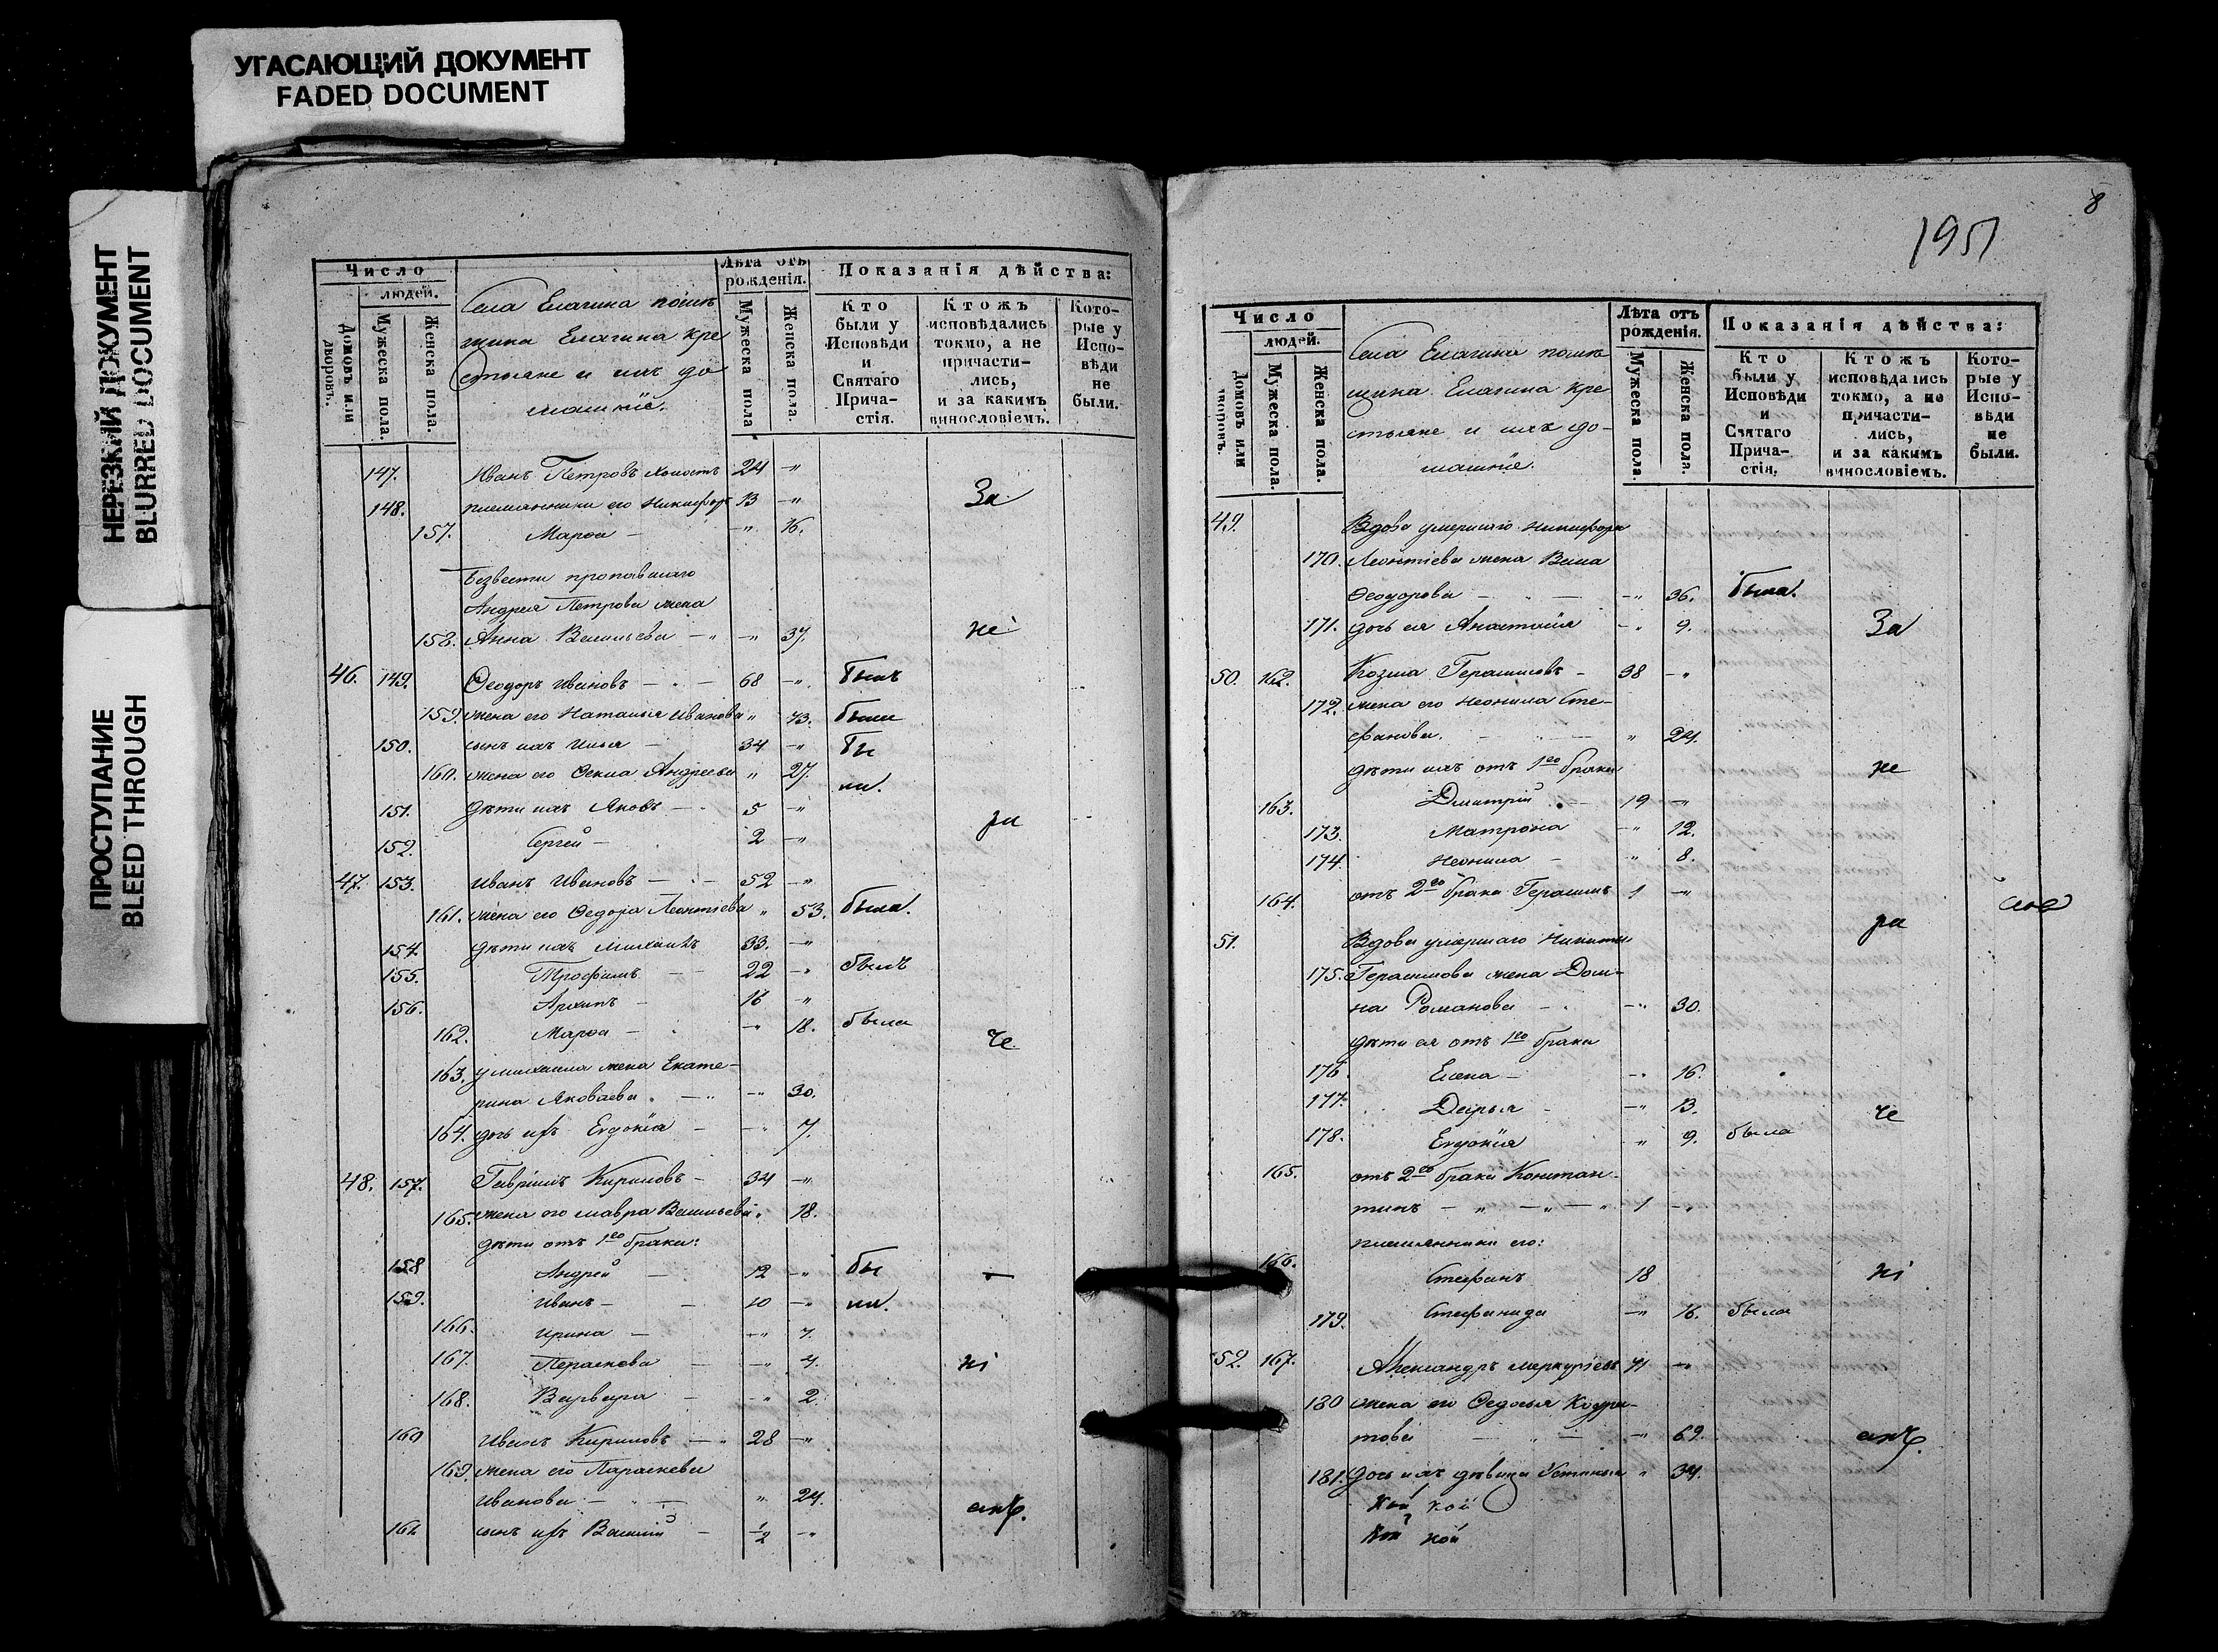 УГАСАЮЩИЙ ДОКУМЕНТ
FADED DOCUMENT
НЕРЕЗКИЙ ДОКУМЕНТ
BLURRED DOCUMENT
ПРОСТУПАНИЕ
BLEED THROUGH
Число
людей.
Домовъ или дворовъ.
Мужеска пола.
Женска пола.
Села Елагина помѣ
щика Елагина кре
стьяне и ихъ до
машніе.
Лѣта отъ рожденія.
Мужеска пола
Женска пола.
Показанія дѣйства:
Кто были у Исповѣди и Святаго Прича- стія.
Ктожъ исповѣдались токмо, а не причасти- лись, и за какимъ винословіемъ.
Кото- рые у Испо- вѣди не были.
147. Иванъ Петровъ холостъ 24 -"
148. племянники его Никифоръ 13 -"
За
157. Марѳа - -" 16.
Безвести пропавшаго
Андрея Петрова жена
158. Анна Васильева - " -" 37. не
46. 149. Ѳеодоръ Ивановъ - " - 68 -" былъ
159. жена его Наталья Иванова " 43. была
150. сынъ ихъ Илья - 34 -" бы
160. жена его Ѳекла Андреева " 27. ли.
151. дѣти ихъ Яковъ - 5 -"
ра
152. Сергей - 2 -"
47. 153. Иванъ Ивановъ - - 52 -"
161. жена его Ѳедора Леонтіева " 53. была.
154. дѣти ихъ Михаилъ 33. -"
155. Трофимъ - - 22 -" былъ
156. Архипъ - 16 -"
162. Марѳа - -" 18. была
че
163. у михаила жена Екате-
рина Яковлева. - " -" 30.
164. дочь ихъ Евдокія - -" 7.
48. 157. Гавріилъ Кириловъ - 34 -"
165. жена его мавра Васильева " 18.
дѣти отъ 1го брака:
158 Андрей - 12 -" бы -
159. Иванъ - - 10 -" ли.
166. Ирина - -" 7.
167. Параскева - -" 4. ні
168. Варвара - -" 2.
160 Иванъ Кириловъ - " 28 -"
169. жена его Параскева
Иванова - - " 24.
161 сынъ ихъ Василій - ½ -"
8
1951
Число
людей.
Домовъ или дворовъ.
Мужеска пола.
Женска пола.
Села Елагина помѣ
щика Елагина кре
стьяне и ихъ до-
машніе.
Лѣта отъ рожденія.
Мужеска пола.
Женска пола.
Показанія дѣйства:
Кто были у Исповѣди и Святаго Прича- стія.
Ктожъ исповѣдались токмо, а не причасти- лись, и за какимъ винословіемъ.
Кото- рые у Испо- вѣди не были.
49. Вдова умершаго Никифора
170. Леонтіева жена
Ѳеодорова - - -" 36. была.
171. дочь ея Анастасія -" 9. За
50. 162. Козма Герасимовъ - 38 -"
172. жена его Неонила Сте-
фанова. - " - " 24.
дѣти ихъ отъ 1го брака не
163. Дмитрій - 19 -"
173. Матрона -" 12.
174. Неонила - " 8.
164. отъ 2го брака Герасимъ 1 -"
ра
51. Вдова умершаго Никиты
175. Герасимова жена Дом-
на Романова - -" 30.
дѣти ея отъ 1го брака
176. Елена - -" 16.
177. Дарья - -" 13. че
178. Евдокія -" 9. была
165. отъ 2го брака Констан-
тинъ - " - " - " 1 -"
племянники его:
166. Стефанъ 18 ні
179. Стефанида -" 16. была
52. 167. Александръ меркуріевъ 71 -"
180 жена его Ѳедосья Кодра-
това - " - -" 69.
181. дочь ихъ дѣвица Устинья " 34.
кой
кой